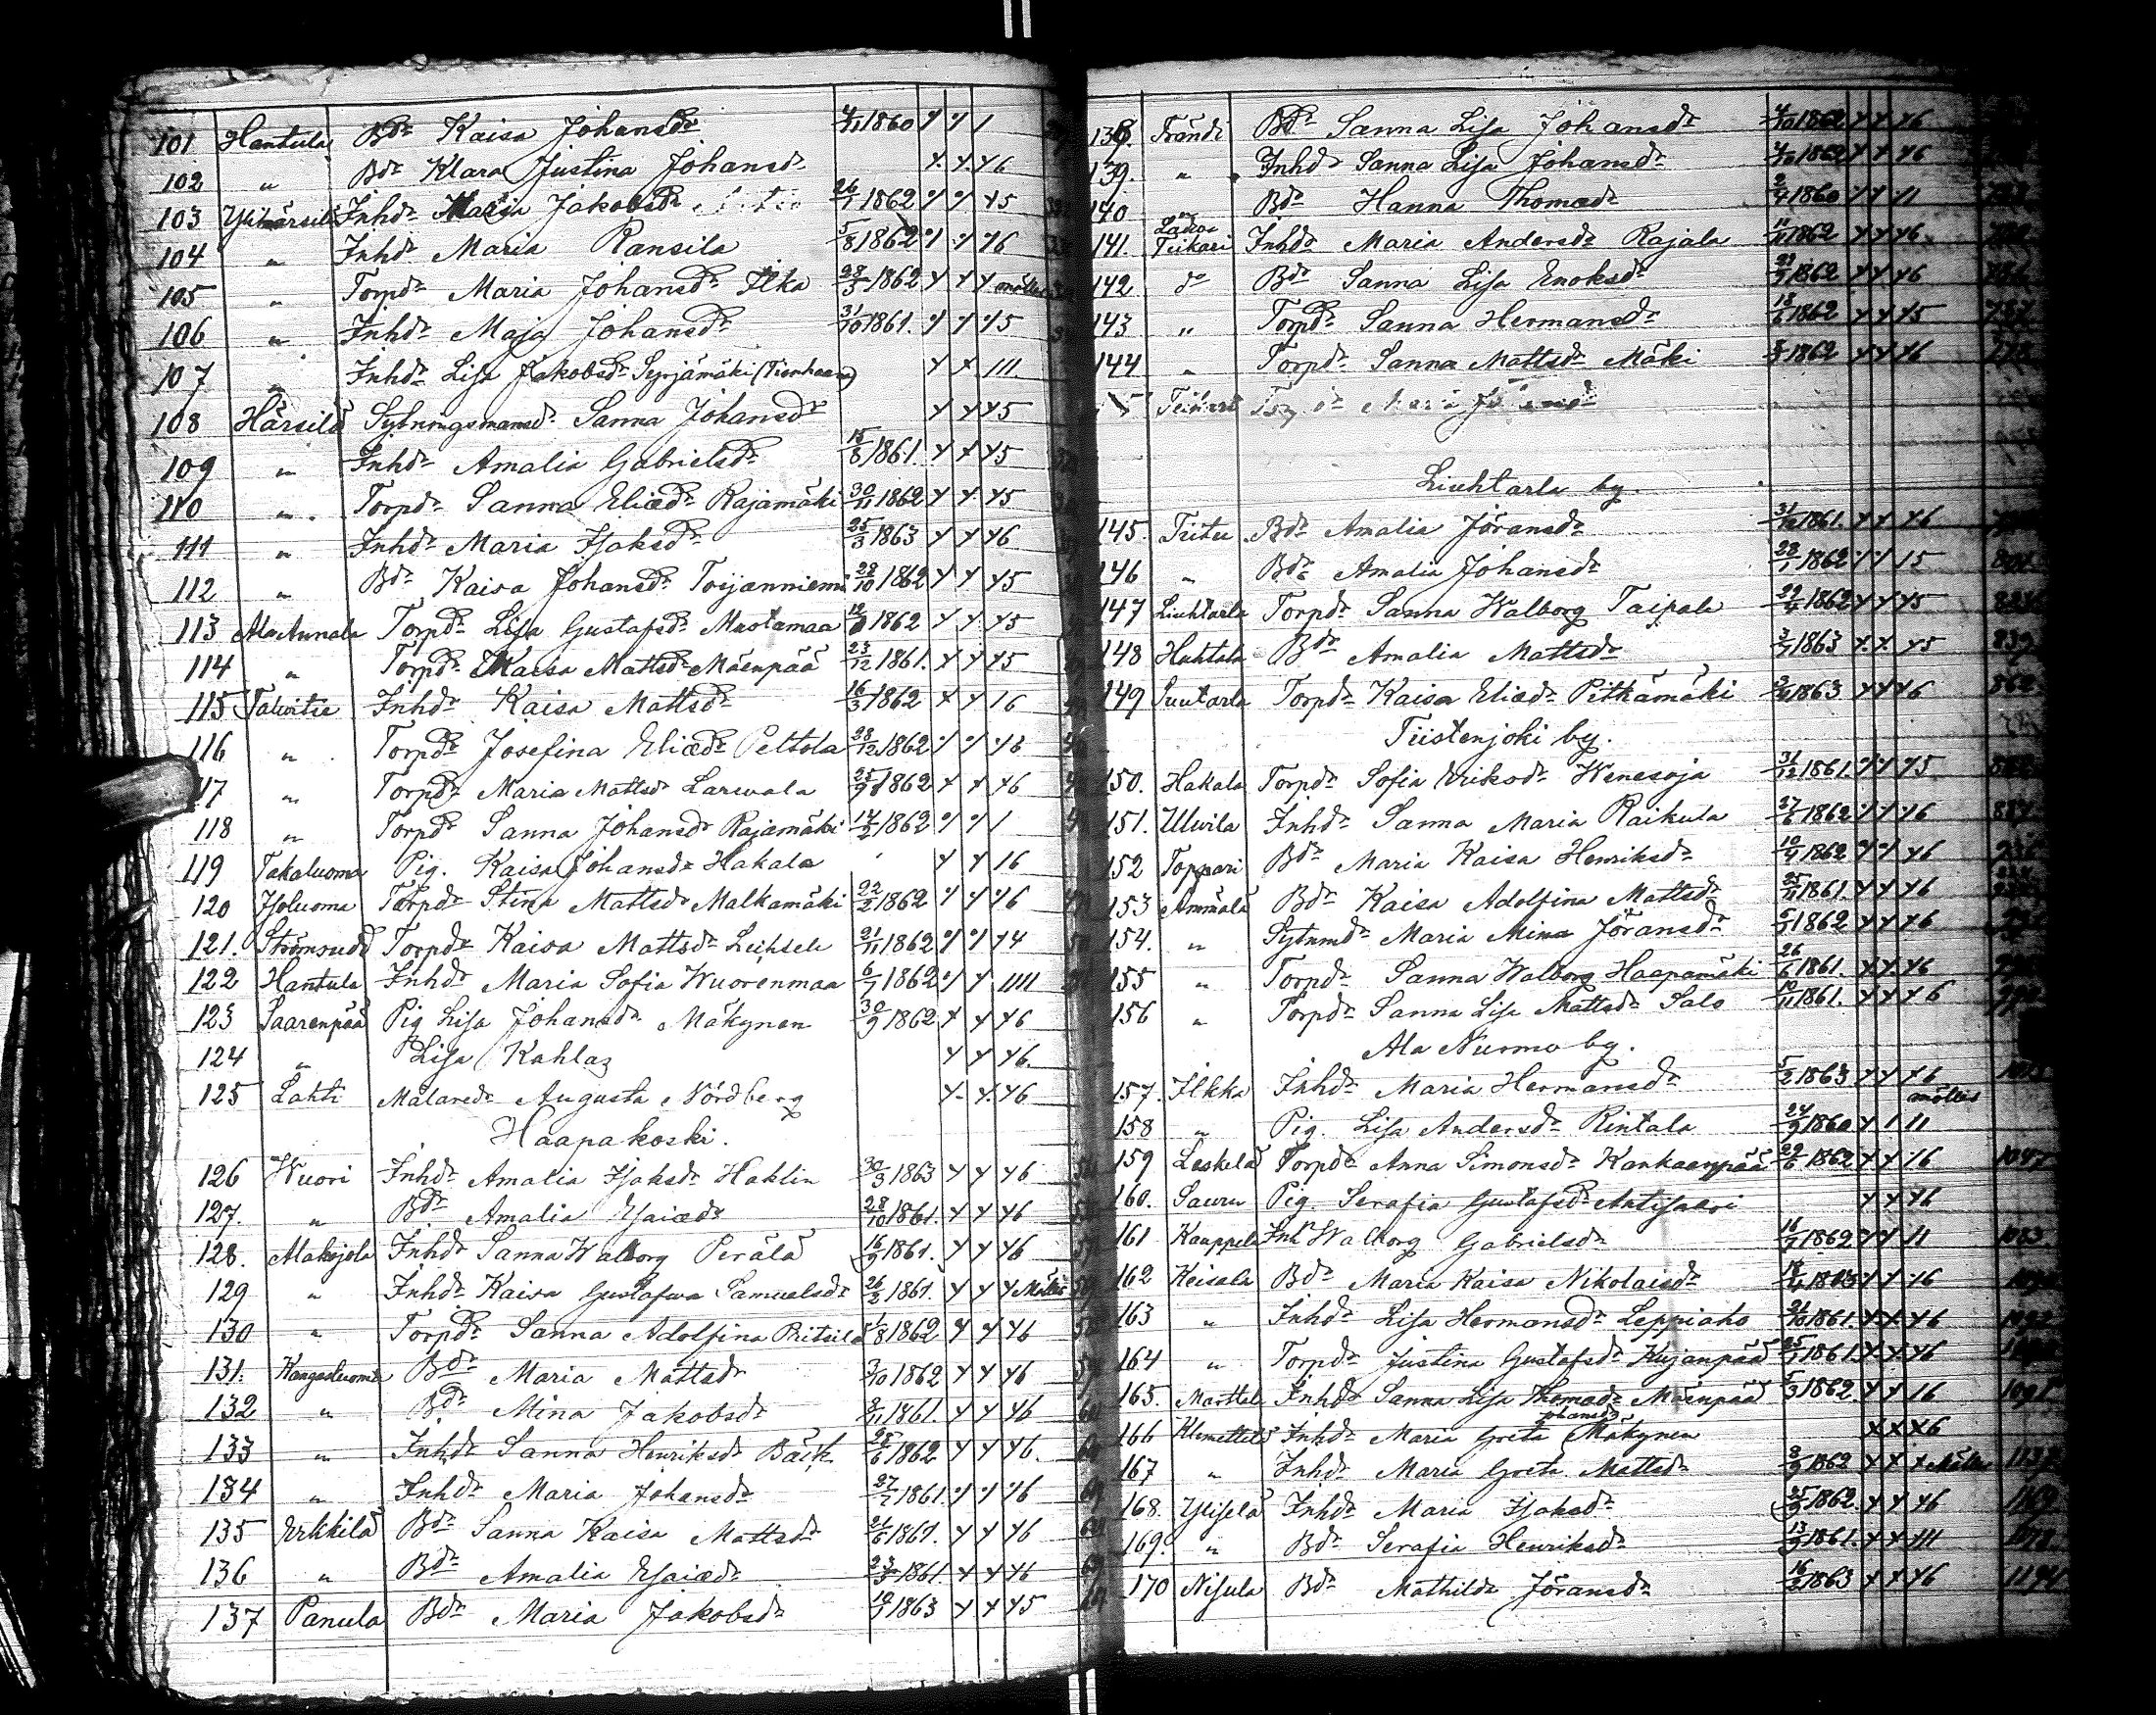 101 Hantula Bdr Kaisa Johansdr 4/11 1860 y y 1
102 " Bdr Klara Justina Johansdr y. y. y6
103 Inhdr Maria Jakobsdr 26/1 1862 y y. y5
104 " Inhdr Maria Ransila 5/8 1862 y y y6
105 " Torpdr Maria Johansdr Ilka 28/3 1862 y y y
106 " Inhdr Maja Johansdr 31/10 1861. y y y5
107 " Inhdr Lisa Jakobsdr Syrjämäki y y. 111.
108 Härsilä Sytningsmansdr Sanna Johansdr y y y5
109 " Inhdr Amalia Gabrielsdr 15/8 1861 y y y5
110 " Torpdr Sanna Eliædr Rajamäki 30/11 1862 y y y5
111 " Inhdr Maria Isaksdr 25/3 1863 y y y6
112 " Bdr Kaisa Johansdr Torjanniemi 28/10 1862 y y y5
113 Ala Annala Torpdr Lisa Gustafsdr Mustamaa 1862 y y y5
114 " Torpdr Kaisa Mattsdr Mäenpää 23/12 1861. y y y5
115 Talvitie Inhdr Kaisa Mattsdr 16/3 1862 y y 16
116 " Torpdr Josefina Eliædr Peltola 28/12 1862 y y y6
117 " Torpdr Maria Mattsdr Larvala 1862 y y y6
118 " Torpdr Sanna Johansdr Rajamäki 14/2 1862 y y 1
119 Takaluoma Pig. Kaisa Johansdr Hakala y y 16
120 Isoluoma Torpdr Stina Mattsdr Malkamäki 22/2 1862 y y y6
121. Torpdr Kaisa Mattsdr 21/11 1862 y y y4
122 Hantula Inhdr Maria Sofia Wuorenmaa 6/1 1862 y y 1111
123 Saarenpää Pig Lisa Johansdr Mäkynen 30/9 1862 y y y6
124 " Lisa Kahlaz y y y6.
125 Lahti Målaredr Augusta Nordberg y y. y6
Haapakoski.
126 Wuori Inhdr Amalia Isaksdr Haklin 30/3 1863 y y y6
127. " Bdr Amalia Esaiædr 28/10 1861. y y y6
128. Alakojola Inhdr Sanna Walborg Perälä 16/9 1861. y y y6
129 " Inhdr Kaisa Gustafwa Samuelsdr 26/2 1861. y y y
130 " Torpdr Sanna Adolfina Pitsilä 1/8 1862 y y y6
131. Kangasluoma Bdr Maria Mattsdr 3/10 1862 y y y6
132 " Bdr Mina Jakobsdr 1861. y y y6
133 " Inhdr Sanna Henriksdr Bäck 25/6 1862 y y y6.
134 " Inhdr Maria Johansdr 27/7 1861. y y y6
135 Erkkilä Bdr Sanna Kaisa Mattsdr 21/6 1861. y y y6
136 " Bdr Amalia Esaiædr 23/3 1861. y y y6
137 Panula Bdr Maria Jakobsdr 19/1 1863 y y y5
138. Frändi Bdr Sanna Lisa Johansdr 4/10 1862 y y y6
139. " Inhdr Sanna Lisa Johansdr 4/10 1862 y y y6
140 " Bdr Hanna Thomædr 2/4 1860 y y 11
141. Teikari Inhdr Maria Andersdr Rajala 1862 y y y6
142 do Bdr Sanna Lisa Enoksdr 1862 y y y6
143 " Torpdr Sanna Hermansdr 18/6 1862 y y y5
144 " Torpdr Sanna Mattsdr Mäki 1862 y y y6
Liuhtarla by.
145. Tiitu Bdr Amalia Jöransdr 31/12 1861. y y y6
146 " Bdr Amalia Johansdr 28/1 1862 y y 15
147 Liuhtarla Torpdr Sanna Walborg Taipale 22/4 1862 y y y5
148 Huhtala Bdr Amalia Mattsdr 3/7 1863 y. y. y5 839
149 Suutarla Torpdr Kaisa Eliædr Pitkämäki 1863 y y y6
Tiistenjoki by.
150. Hakala Torpdr Sofia Eriksdr Wenesoja 31/12 1861. y y y5
151. Ulvila Inhdr Sanna Maria Raikula 27/6 1862 y y y6
152 Toppari Bdr Maria Kaisa Henriksdr 10/4 1862 y y y6
153 Ämmälä Bdr Kaisa Adolfina Mattsdr 25/11 1861. y y y6
154. " Sytnmdr Maria Mina Jöransdr 1862 y y y6
155 " Torpdr Sanna Walborg Haapamäki 26/6 1861. y. y. y6
156 " Torpdr Sanna Lisa Mattsdr Salo 10/11 1861. y y y6
Ala Nurmo by.
157. Ilkka Inhdr Maria Hermansdr 5/2 1863 y y y6
158 " Pig. Lisa Andersdr Rintala 24/9 1860 y 1 11
159 Leskelä Torpdr Anna Simonsdr Kankaanpää 29/6 1862 y y 16 1047
160. Sauru Pig. Serafia Gustafsdr Antisaari y y y6
161 Kauppila Inhdr Walborg Gabrielsdr 16/7 1862 y y 11
162 Keisala Bdr Maria Kaisa Nikolaisdr 18/4 1863 y y y6
163 " Inhdr Lisa Hermansdr Leppiaho 1861. y. y. y6
164 " Torpdr Justina Gustafsdr Kujanpää 25/1 1861. y. y. y6
165. Marttila Inhdr Sanna Lisa Thomædr Mäenpää 1862. y y 16
Johansdr
166 Klemettilä Inhdr Maria Greta Mäkynen x x x6
167 " Inhdr Maria Greta Mattsdr 1862 y y y
168. Yliselä Inhdr Maria Isaksdr 25/9 1862. y y y6
169. " Bdr Serafia Henriksdr 13/9 1861. y y 111
170 Nisula Bdr Mathilda Jöransdr 16/2 1863 y y y6 1194